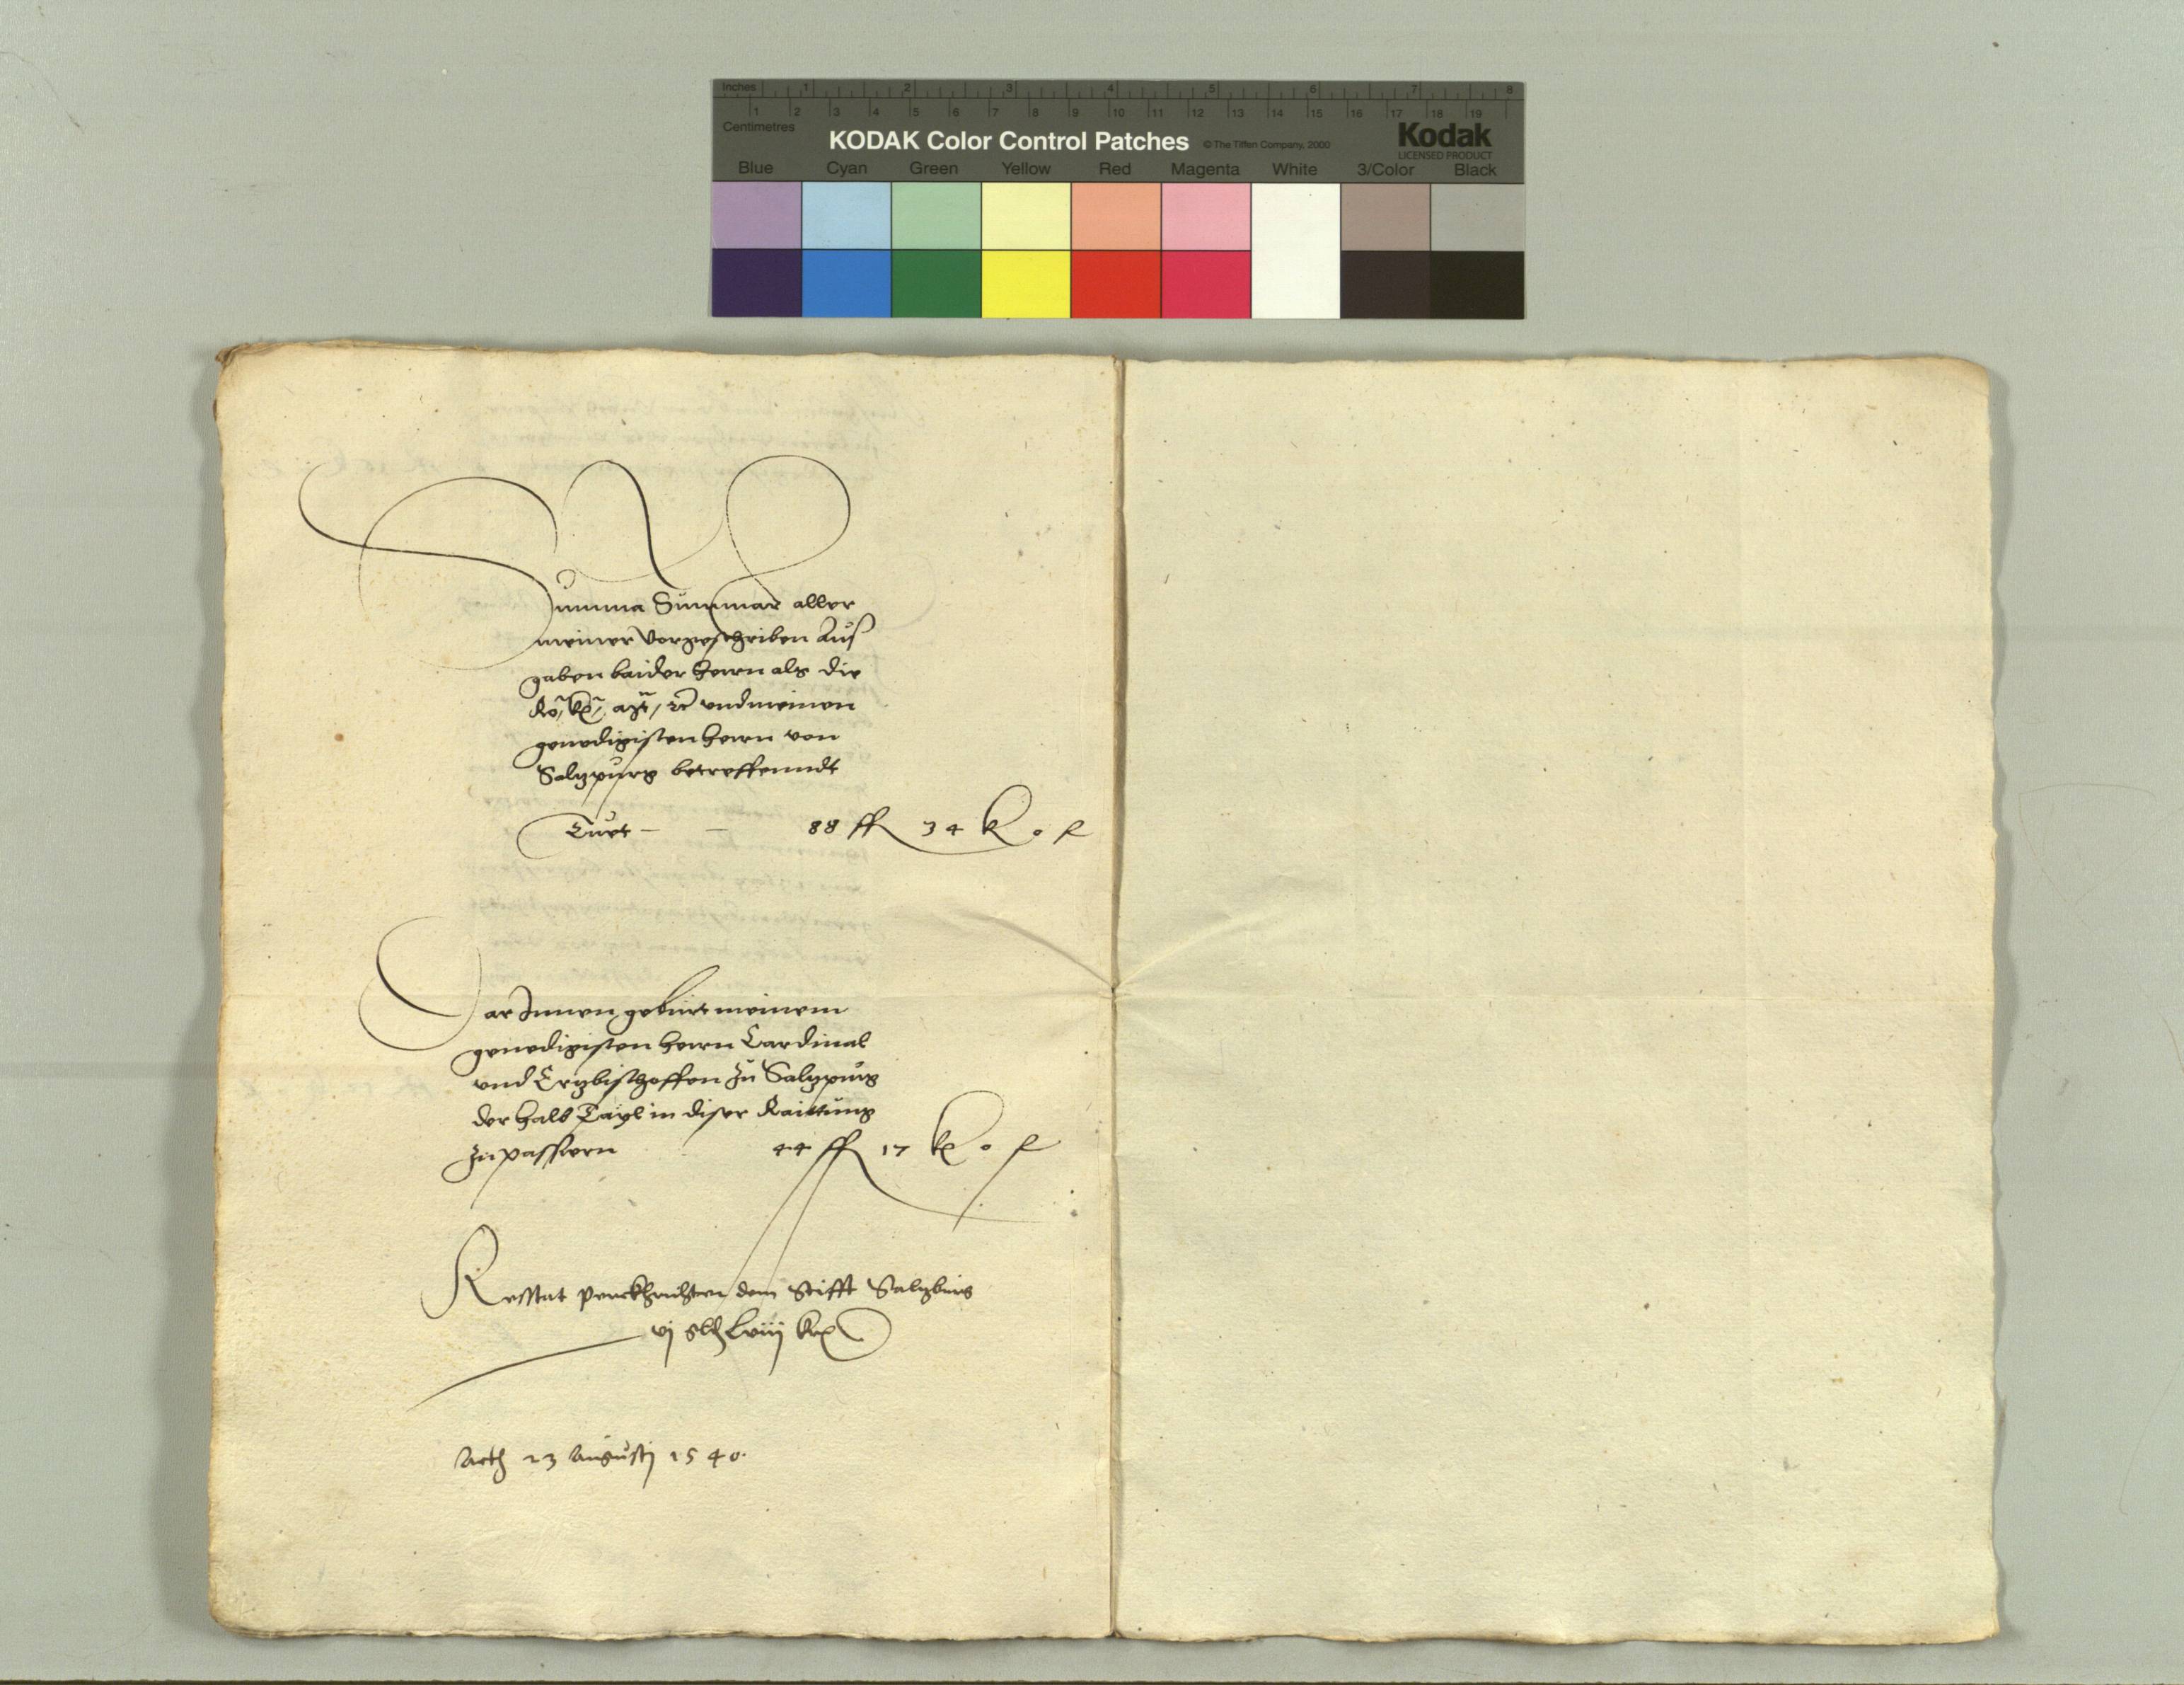 Inches 1 2 3 4 5 6 7 8
1 2 3 4 5 6 7 8 9 10 11 12 13 14 15 16 17 18 19
Centimetres
KODAK Color Control Patches ©The Tiffen Company, 2000 Kodak
LICENSED PRODUCT
Blue Cyan Green Yellow Red Magenta White 3/Color Black
Summa Summar aller
meiner vorgeschriben Aus
gaben baider Herrn als die
Rö. Kü. Mt. rc vnd meinen
genedigisten herrn von
Saltzpurg betreffenndt
Tuet 88 fl 34 k 0 ₰
Dar Innen gebürt meinem
genedigisten herrn Cardinal
vnd Ertzbischoffen zu Saltzpurg
der halb Tayl in diser Raittung
zu passiern 44 fl 17 kr 0 ₰
Restat dem Stifft Saltzburg
vj gld Lviij kr
Act 23 Augustj 1540.